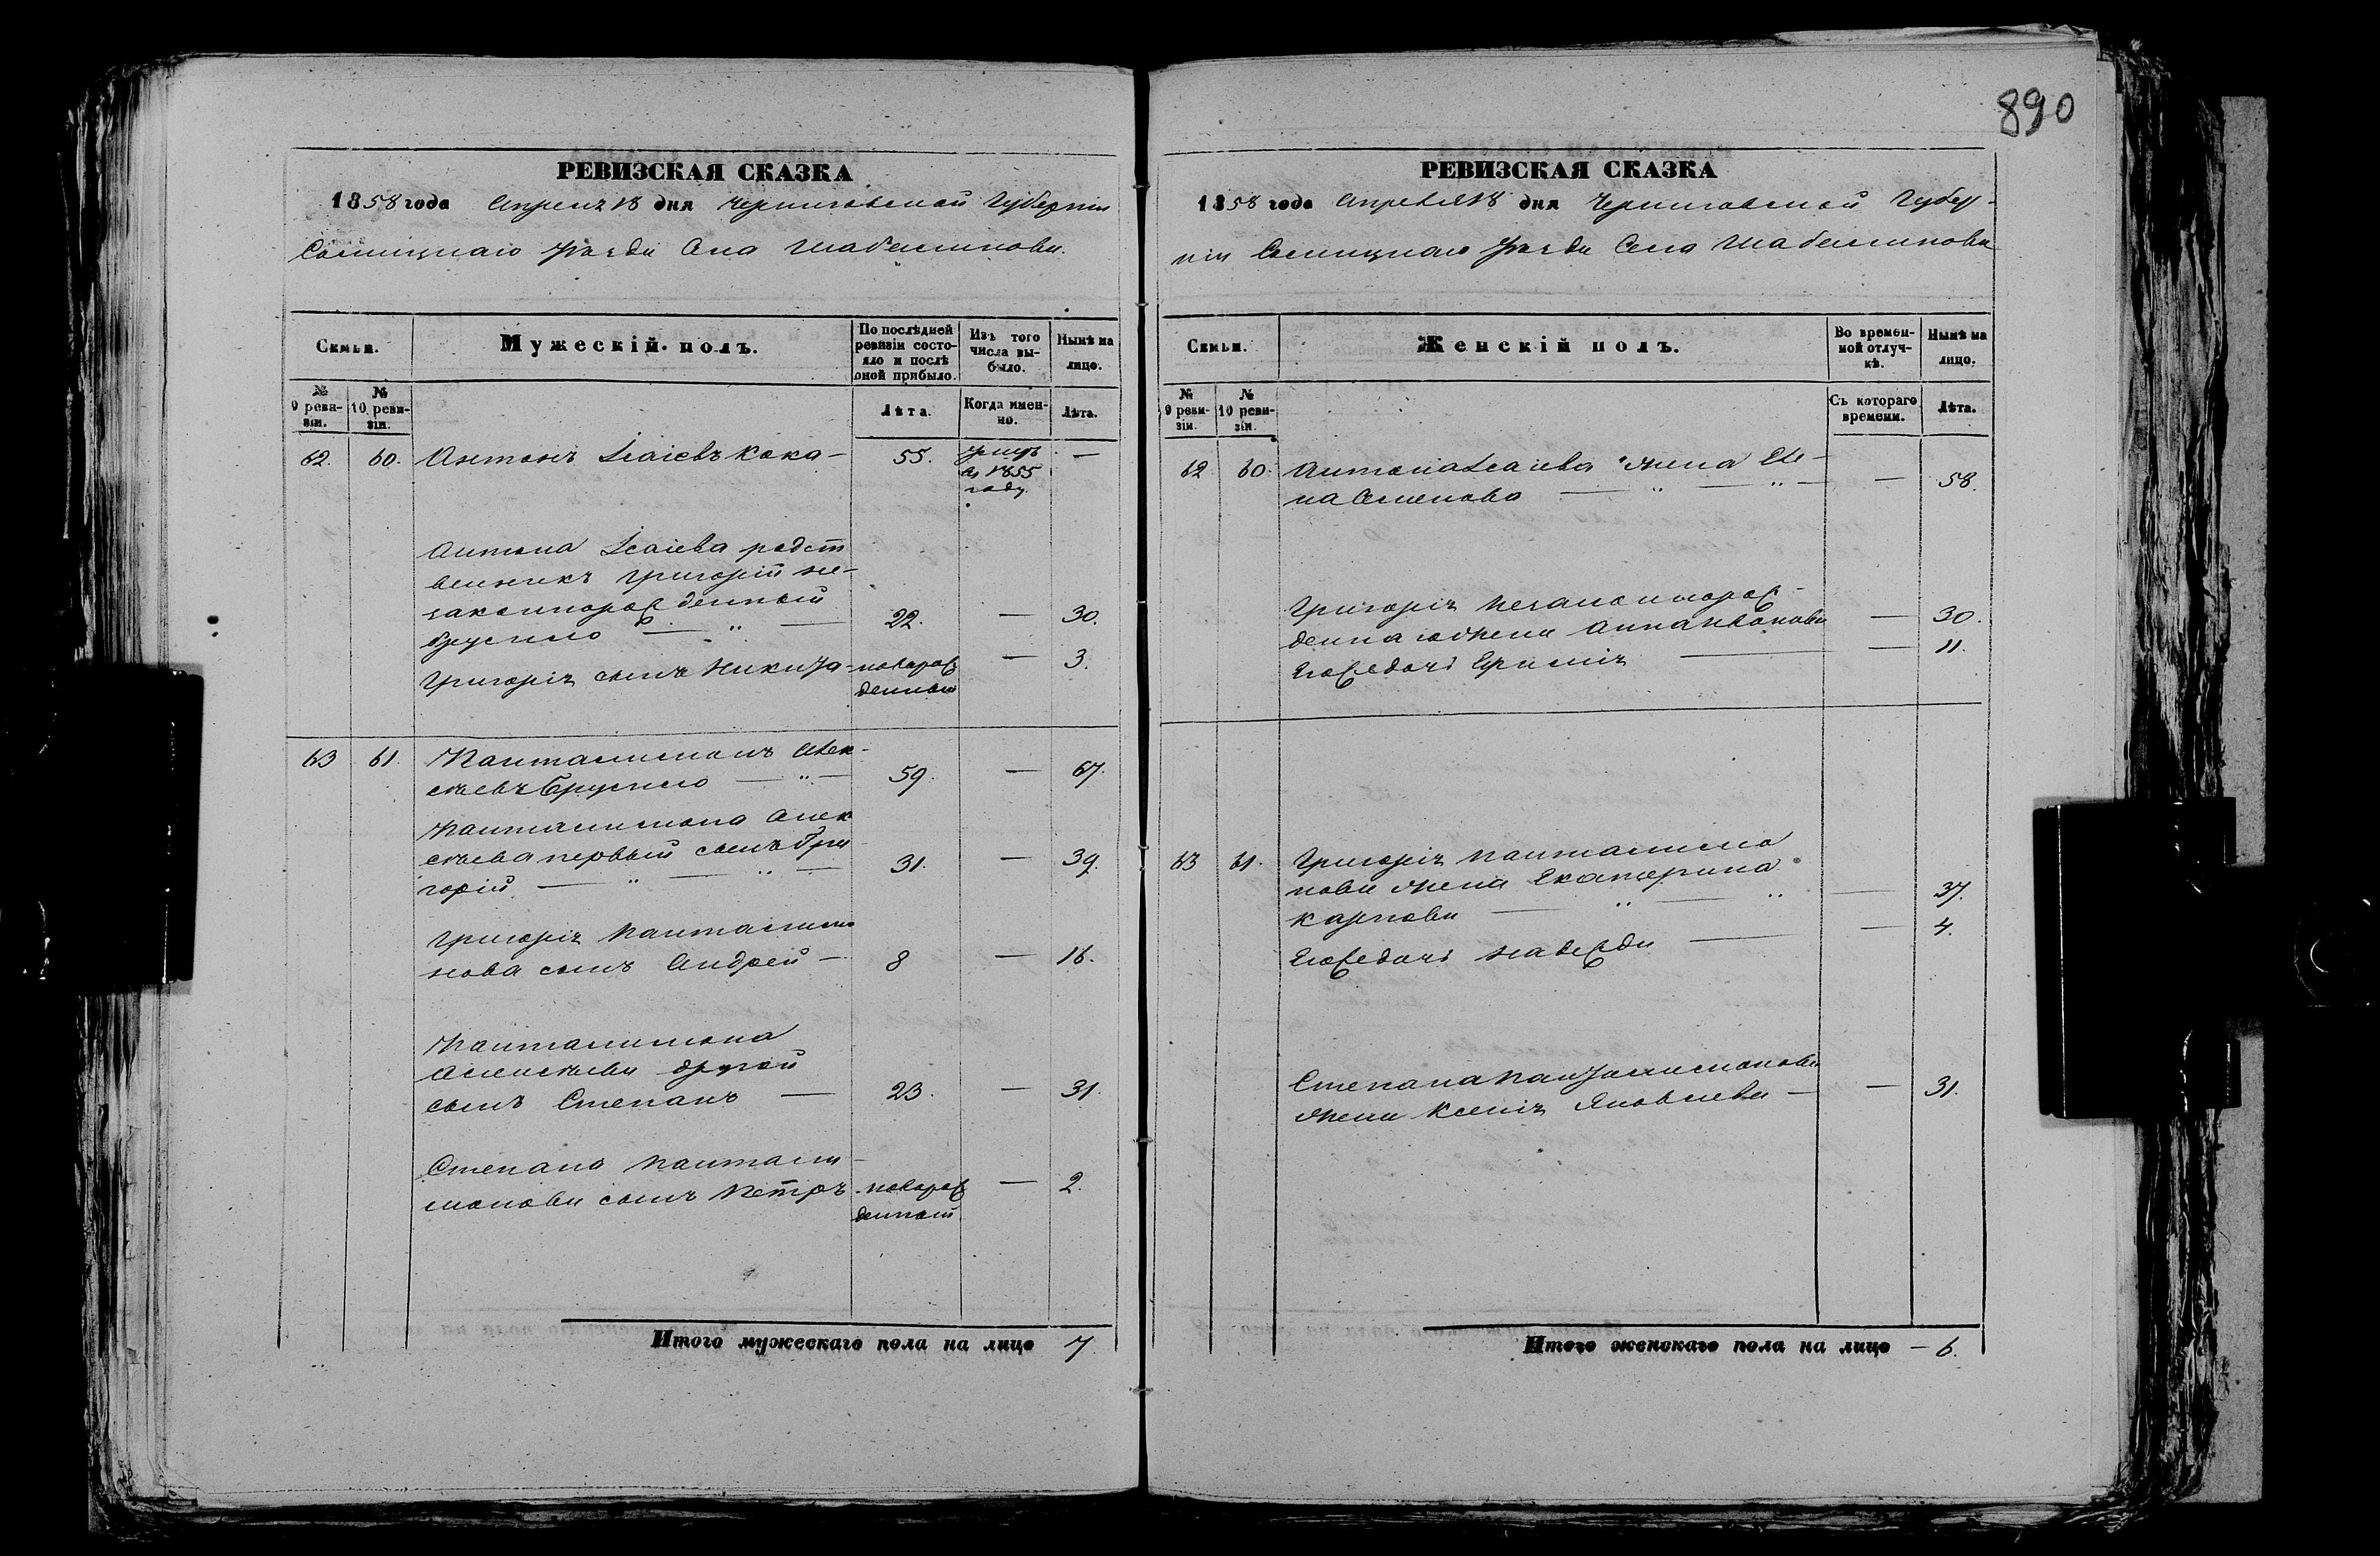 890
РЕВИЗСКАЯ СКАЗКА
1858 года Апреля 18 дня Черниговской Губернiи
Сосницкаго уѣзда Села Шабалинова.
Семьи.
Мужескiй полъ.
По послѣдней ревизiи состояло и послѣ оной прибыло.
Изъ того числа выбыло.
Нынѣ на лицо.
№ 9 ревизiи.
№ 10 ревизiи.
Лѣта.
Когда именно.
Лѣта.
62. 60. Антонъ Исаiевъ Кока — 55. умеръ въ 1855 году —
Антона Исаiева родст
венникъ Григорiй не-
законнорожденный
Брусило — " — 22. — 30.
Григорiя сынъ Никита - новорожденный — 3.
63 61. Пантелимонъ Алек-
сѣевъ Брусило — " — 59. — 67.
Пантелимона Алек
сѣева первый сынъ Гри
горiй — " — " — 31. — 39.
Григорiя Пантелимо
нова сынъ Андрей — 8 — 16.
Пантелимона
Алексѣева другой
сынъ Степанъ — 23. — 31.
Степана Пантели-
монова сынъ Петръ новорожденный — 2.
Итого мужескаго пола на лицо 7
РЕВИЗСКАЯ СКАЗКА
1858 года Апреля 18 дня Черниговской Губер-
нiи Сосницкаго уѣзда Села Шабалинова
Семьи.
Женскiй полъ.
Во временной отлучкѣ.
Нынѣ на лицо.
№ 9 ревизiи.
№ 10 ревизiи.
Съ котораго времени.
Лѣта.
62 60. Антона Исаiева жена Еле-
на Семенова — " — " — — 58.
Григорiя незаконнорож-
деннаго жена Анна Иванова — 30.
Его же дочь Ефимiя — — 11.
63 61. Григорiя Пантелимо
нова жена Екатерина
Карпова — " — " — 37.
Его же дочь Надежда — — 4.
Степана Пантелимонова
жена Ксенiя Яковлева — — 31.
Итого женскаго пола на лицо — 6.